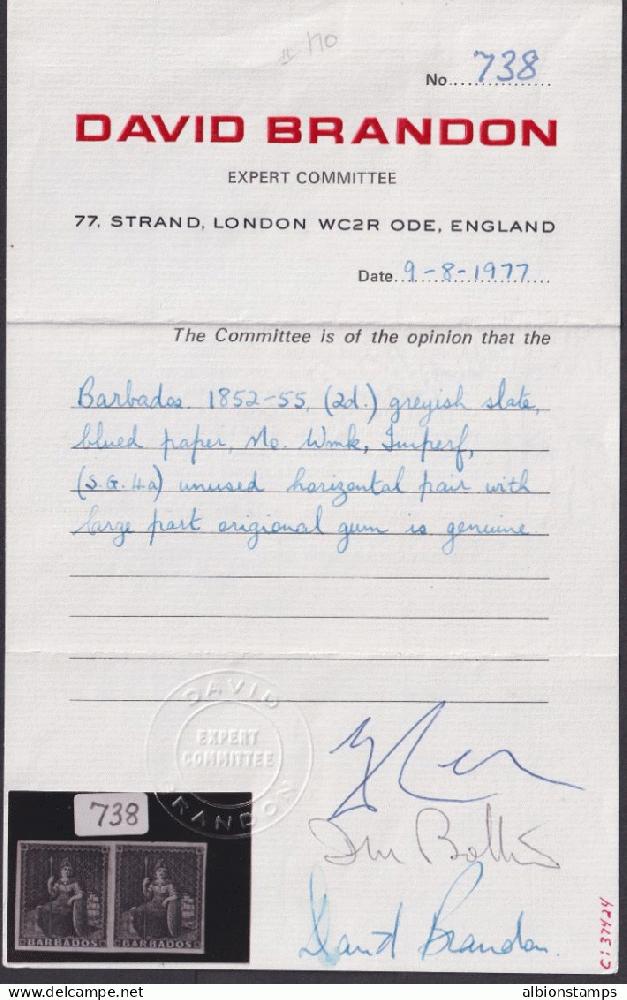 No. 738
DAVID BRANDON
EXPERT COMMITTEE
77, STRAND, LONDON WC2R ODE, ENGLAND
Date. 9-8-1977
The Committee is of the opinion that the
Barbados. 1852-55, (2d.) greyish slate,
blued paper, No. Wmk, Imperf,
(S.G.4a) unused horizontal pair with
large part origional gum is genuine
DAVID
EXPERT
COMMITTEE
BRANDON
738
BARBADOS BARBADOS
David Brandon.
C:37424
delcampe.net
albionstamps